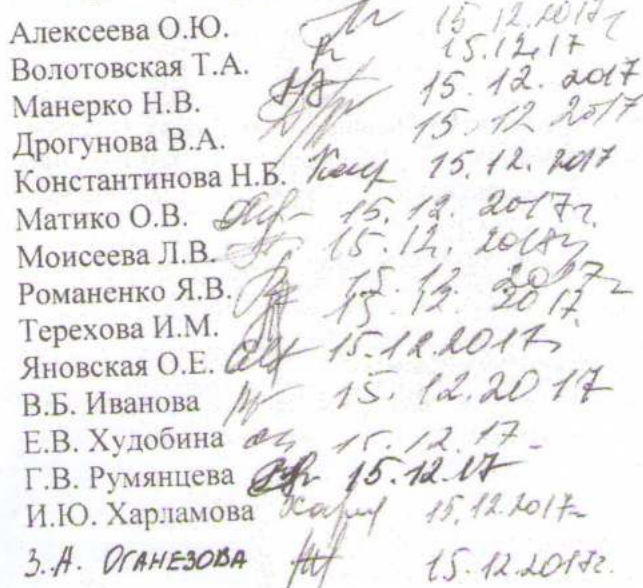 Алексеева О.Ю. 15.12.2017г
Волотовская Т.А. 15.12.17
Манерко Н.В. 15.12.2017
Дрогунова В.А. 15.12 2017
Константинова Н.Б. 15.12.2017
Матико О.В. 15.12.2017г
Моисеева Л.В. 15.12.2017г
Романенко Я.В. 15.12.2017г
Терехова И.М. 15.12.2017
Яновская О.Е. 15.12.2017г
В.Б. Иванова 15.12.2017
Е.В. Худобина 15.12.17
Г.В. Румянцева 15.12.17
И.Ю. Харламова 15.12.2017г
З.А. ОГАНЕЗОВА 15.12.2017г.